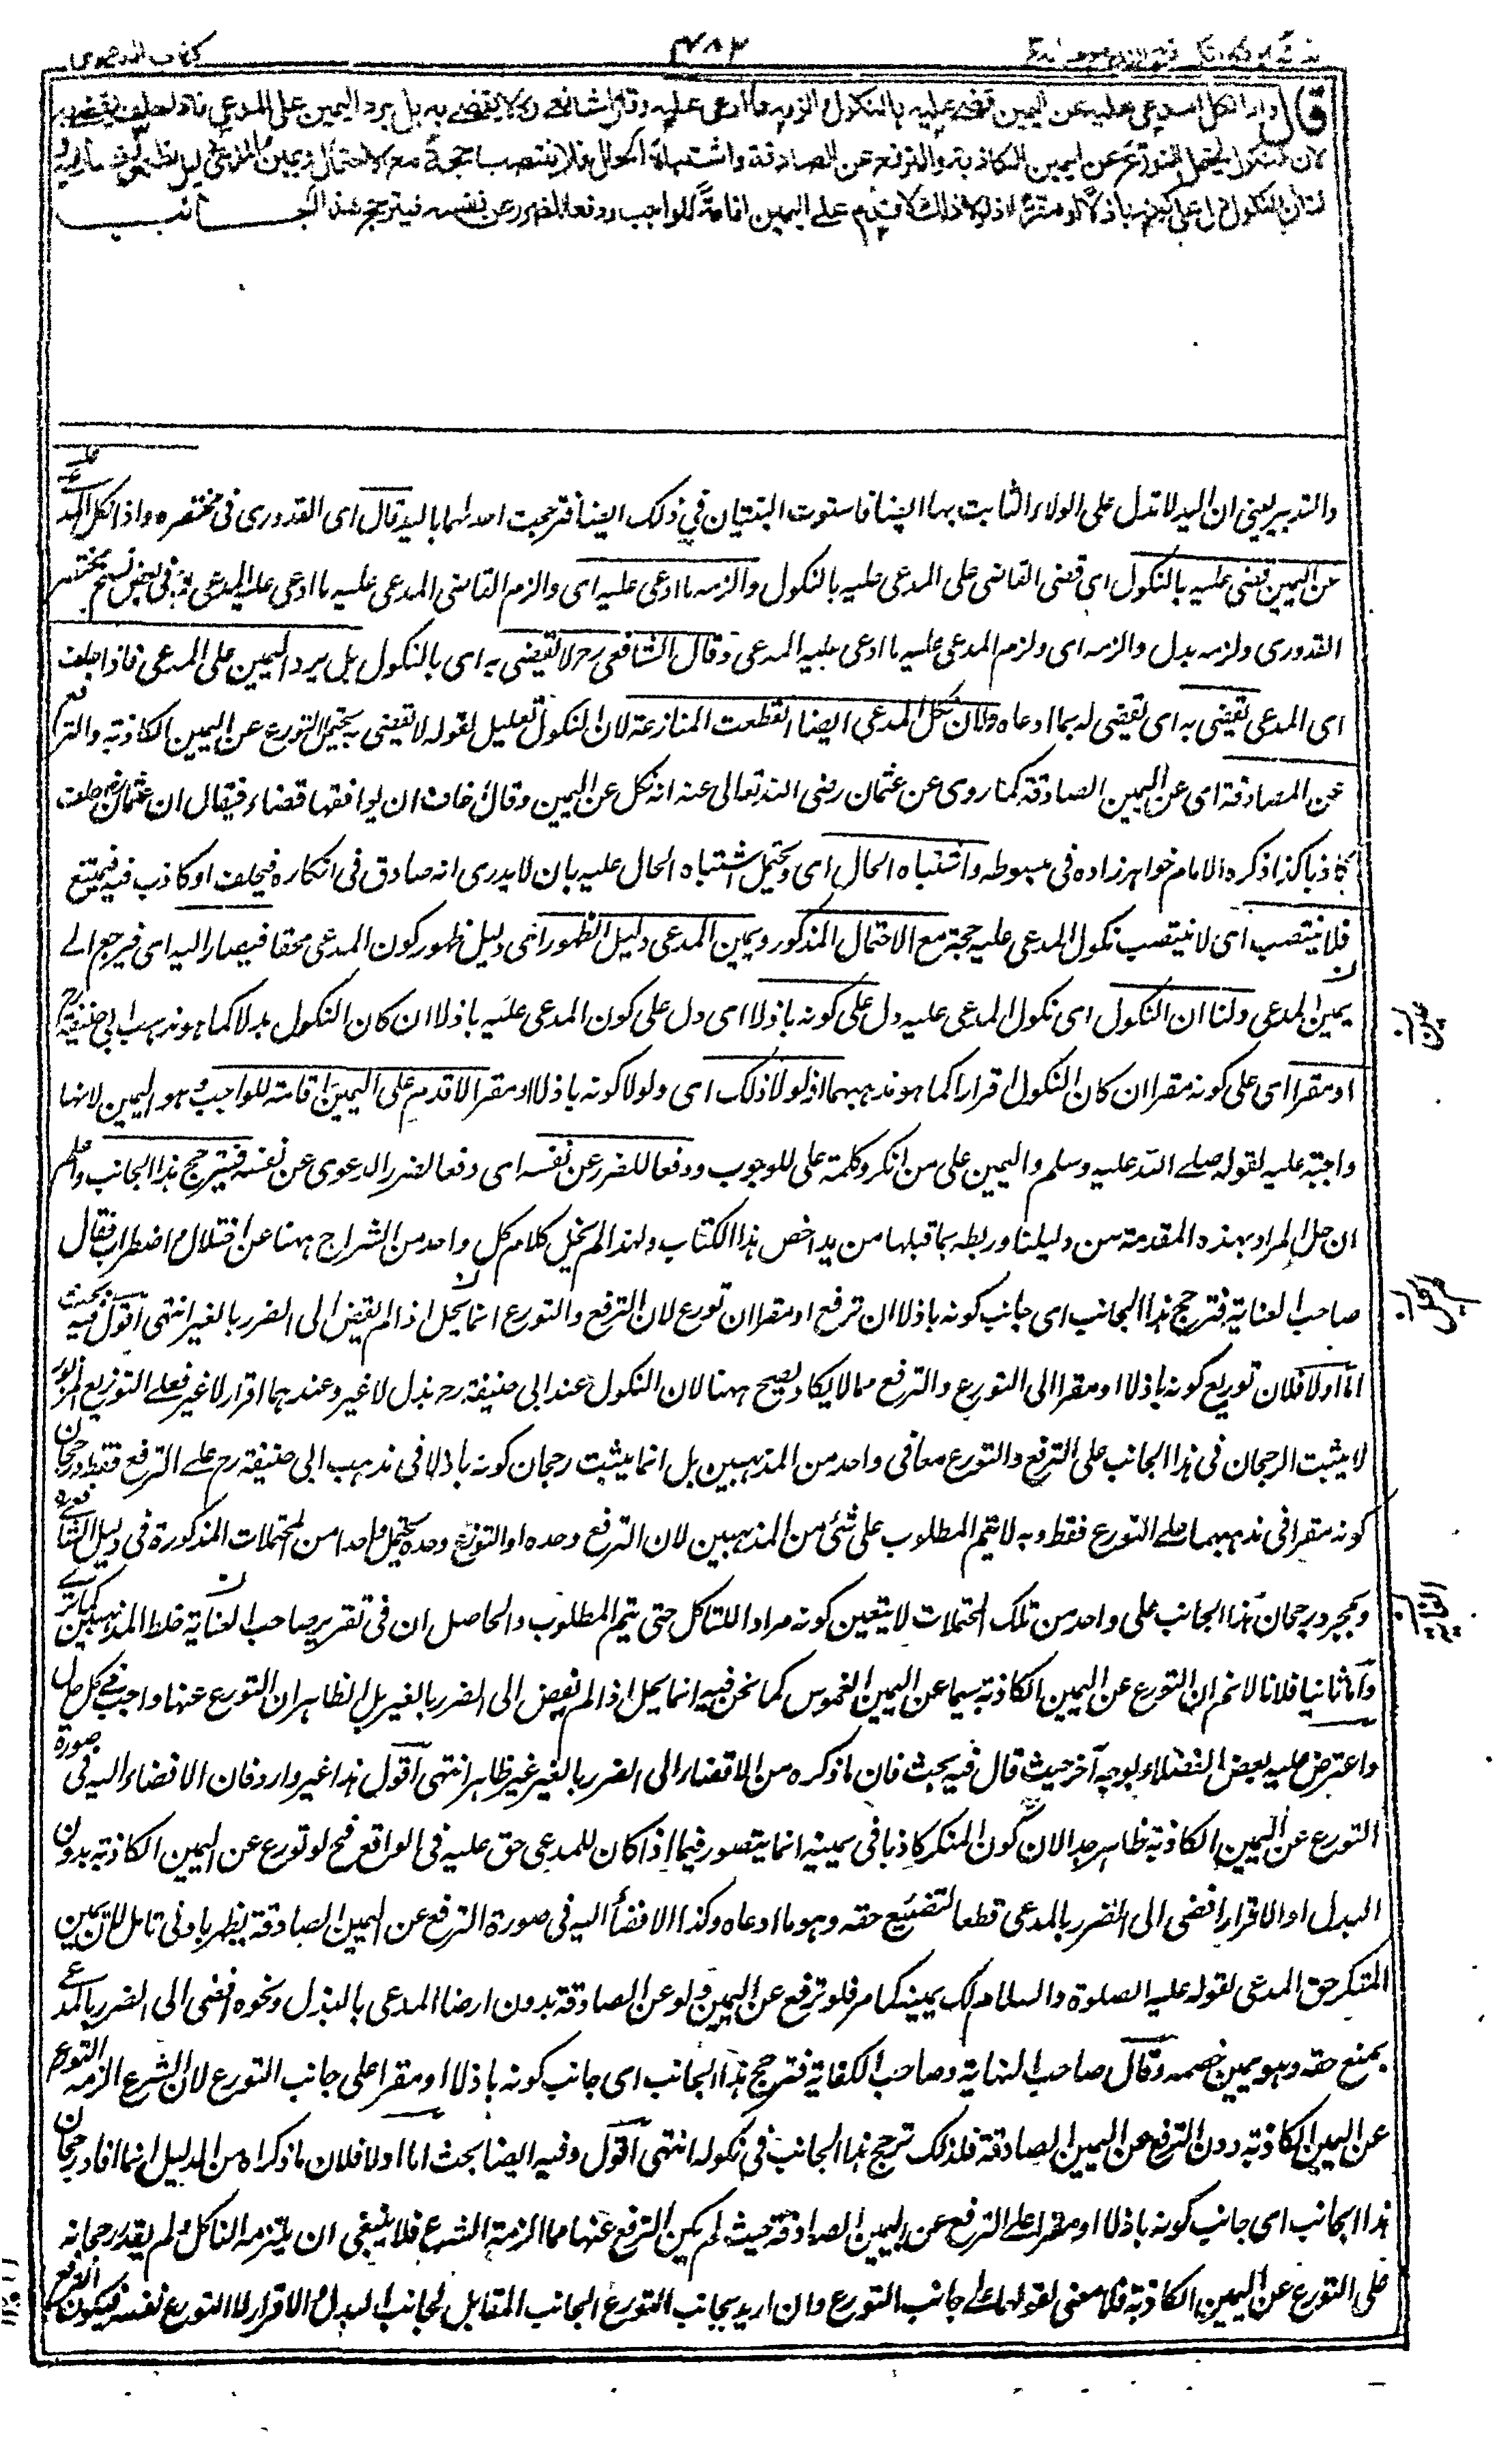 ٤٨٣
كتاب الدعوى
قال واذا نكل المدعى عليه عن اليمين قضى عليه بالنكول والزمه ما ادعى عليه وقال الشافعى رح لا يقضى به بل يرد اليمين على المدعى فاذا حلف يقضى به
لان النكول يحتمل التورع عن اليمين الكاذبة والترفع عن الصادقة واشتباه الحال فلا ينتصب حجة مع الاحتمال ويمين المدعى دليل الظهور فيصار اليه
لنا ان النكول دل على كونه باذلا او مقرا اذ لولا ذلك لاقدم على اليمين اقامة للواجب ودفعا للضرر عن نفسه فيترجح هذا الجانب
والتدبير يعنى ان اليد لا تدل على الولاء الثابت بها ايضا فاستوت البينتان فى ذلك ايضا فترجحت احدلهما باليد قال اى القدورى فى مختصره واذا نكل المدعى عليه
عن اليمين قضى عليه بالنكول اى قضى القاضى على المدعى عليه بالنكول والزمه ما ادعى عليه اى والزم القاضى المدعى عليه ما ادعى عليه المدعى وفى بعض نسخ مختصر
القدورى ولزمه بدل والزمه اى ولزم المدعى عليه ما ادعى عليه المدعى وقال الشافعى رح لا يقضى به اى بالنكول بل يرد اليمين على المدعى فاذا حلف
اى المدعى يقضى به اى يقضى له بما ادعاه وان نكل المدعى ايضا انقطعت المنازعة لان النكول تعليل لقوله لا يقضى به يحتمل التورع عن اليمين الكاذبة والترفع
عن الصادقة اى عن اليمين الصادقة كما روى عن عثمان رضى الله تعالى عنه انه نكل عن اليمين وقال خاف ان يوافقها قضاء فيقال ان عثمان رض حلف
كاذبا كذا ذكره الامام خواهر زاده فى مبسوطه واشتباه الحال اى ويحتمل اشتباه الحال عليه بان لا يدرى انه صادق فى انكاره فيحلف او كاذب فيه فيمتنع
فلا ينتصب اى لا ينتصب نكول المدعى عليه حجة مع الاحتمال المذكور ويمين المدعى دليل الظهور اى دليل ظهور كون المدعى محقا فيصار اليه اى فيرجع الى
يمين المدعى ولنا ان النكول اى نكول المدعى عليه دل على كونه باذلا اى دل على كون المدعى عليه باذلا ان كان النكول بدلا كما هو مذهب ابى حنيفة رح
او مقرا اى على كونه مقرا ان كان النكول اقرارا كما هو مذهبهما اذ لولا ذلك اى ولولا كونه باذلا او مقرا لاقدم على اليمين اقامة للواجب هو اليمين لانها
واجبة عليه لقوله صلى الله عليه وسلم واليمين على من انكر وكلمة على للوجوب ودفعا للضرر عن نفسه اى دفعا لضرر الدعوى عن نفسه فيترجح هذا الجانب واعلم
ان حل المراد بهذه المقدمة من دليلنا وربطه بما قبلها من يداخص هذا الكتاب ولهذا لم يخل كلام كل واحد من الشراح ههنا عن اختلال واضطراب فقال
صاحب العناية فترجح هذا الجانب اى جانب كونه باذلا ان ترفع او مقرا ان تورع لان الترفع والتورع انما يحل اذا لم يفض الى الضرر بالغير انتهى اقول فيه بحث
اما اولا فلان توزيع كونه باذلا او مقرا الى التورع والترفع مما لا يكاد يصح ههنا لان النكول عند ابى حنيفة رح بذل لا غير وعندهما اقرار لا غير فعلى التوزيع المزبور
لا يثبت الرجحان فى هذا الجانب على الترفع والتورع معا فى واحد من المذهبين بل انما يثبت رجحان كونه باذلا فى مذهب ابى حنيفة رح على الترفع فقط ورجحان
كونه مقرا فى مذهبهما على التورع فقط وبه لا يتم المطلوب على شئ من المذهبين لان الترفع وحده او التورع وحده يحتمل واحدا من المحتملات المذكورة فى دليل الشافعى
وبمجرد رجحان هذا الجانب على واحد من تلك المحتملات لا يتعين كونه مرادا للناكل حتى يتم المطلوب والحاصل ان فى تقرير صاحب العناية خلط المذهبين كما ترى
واما ثانيا فلانا لا نم ان التورع عن اليمين الكاذبة سيما عن اليمين الغموس كما نحن فيه انما يحل اذا لم يفض الى الضرر بالغير بل الظاهر ان التورع عنها واجب فى كل حال
واعترض عليه بعض الفضلاء بوجه آخر حيث قال فيه بحث فان ما ذكره من الافضاء الى الضرر بالغير غير ظاهر انتهى اقول هذا غير وارد فان الافضاء اليه فى صورة
التورع عن اليمين الكاذبة ظاهر جدا لان كون المنكر كاذبا فى يمينه انما يتصور فيما اذا كان للمدعى حق عليه فى الواقع فح لو تورع عن اليمين الكاذبة بدون
البدل او الاقرار افضى الى الضرر بالمدعى قطعا لتضييع حقه وهو ما ادعاه وكذا الافضاء اليه فى صورة الترفع عن اليمين الصادقة يظهر بادنى تامل لان يمين
المنكر حق المدعى لقوله عليه الصلوة والسلام لك يمينه كما مر فلو ترفع عن اليمين ولو عن الصادقة بدون ارضاء المدعى بالبذل ونحوه افضى الى الضرر بالمدعى
بمنع حقه وهو يمين خصمه وقال صاحب النهاية وصاحب الكفاية فترجح هذا الجانب اى جانب كونه باذلا او مقرا على جانب التورع لان الشرع الزمه التورع
عن اليمين الكاذبة دون الترفع عن اليمين الصادقة فلذلك ترجح هذا الجانب فى نكوله انتهى اقول وفيه ايضا بحث اما اولا فلان ما ذكراه من الدليل انما افاد رجحان
هذا الجانب اى جانب كونه باذلا او مقرا على الترفع عن اليمين الصادقة حيث لم يكن الترفع عنها مما الزمه الشرع فلا ينبغى ان يلتزمه الناكل ولم يفد رجحانه
على التورع عن اليمين الكاذبة فلا معنى لقولهما على جانب التورع وان اريد بجانب التورع الجانب المقابل لجانب البدل والاقرار لا التورع نفسه فيكون الترفع